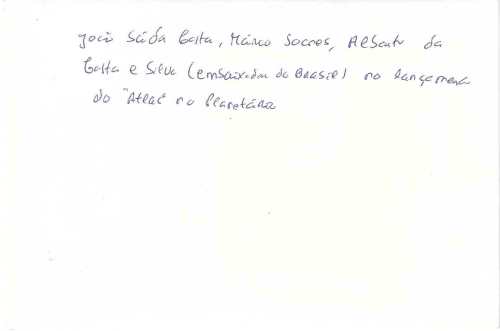 João Sáàda Costa, Mário Soares, Alberto da
Costa e Silva (embaixador do Brasil) no lançamento
do "Atlas" no Planetário